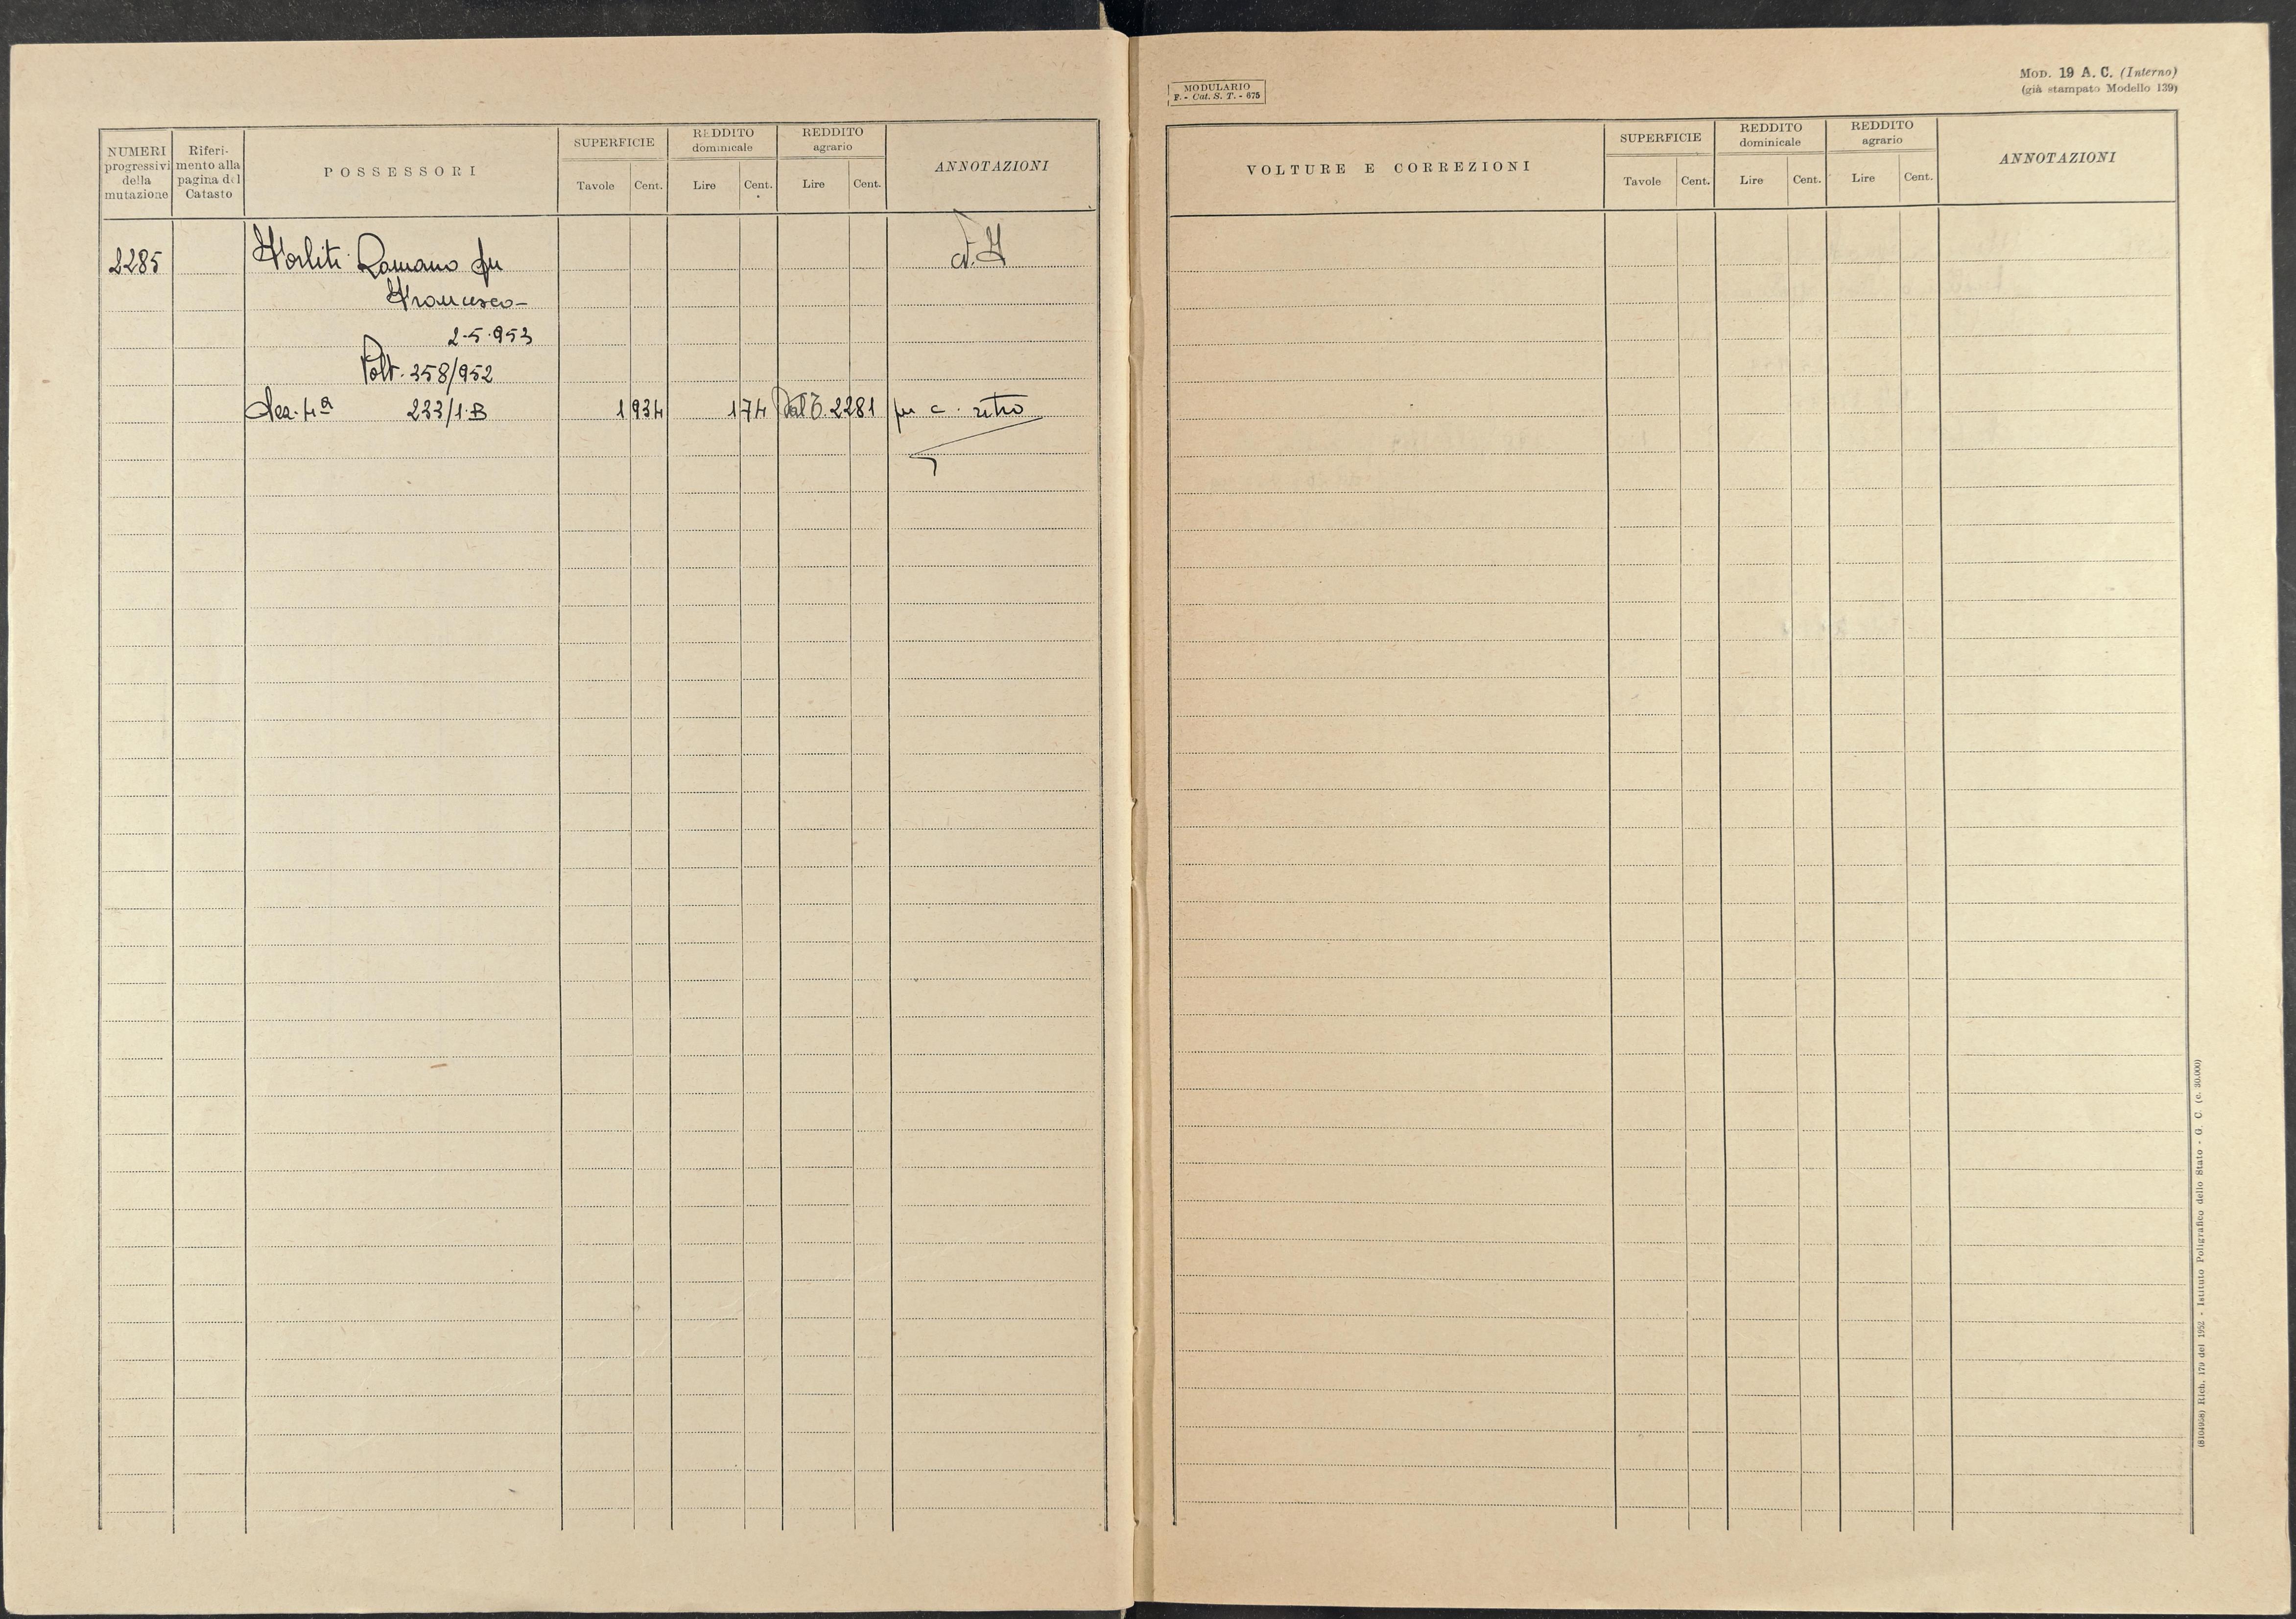 NUMERI progressivi della mutazione
Riferimento alla pagina del Catasto
POSSESSORI
SUPERFICIE
Tavole Cent.
REDDITO dominicale
Lire Cent.
REDDITO agrario
Lire Cent.
ANNOTAZIONI
2285 Romano fu
Francesco-
2-5-953
Volt. 358/952
Sez. 4ª 233/1.B 1 934 1 74 Dal 2281 per c. retro
MODULARIO
F. - Cat. S. T. - 675
MOD. 19 A. C. (Interno)
(già stampato Modello 139)
VOLTURE E CORREZIONI
SUPERFICIE
Tavole Cent.
REDDITO dominicale
Lire Cent.
REDDITO agrario
Lire Cent.
ANNOTAZIONI
(8104958) Rich. 179 del 1952 - Istituto Poligrafico dello Stato - G. C. (c. 30.000)